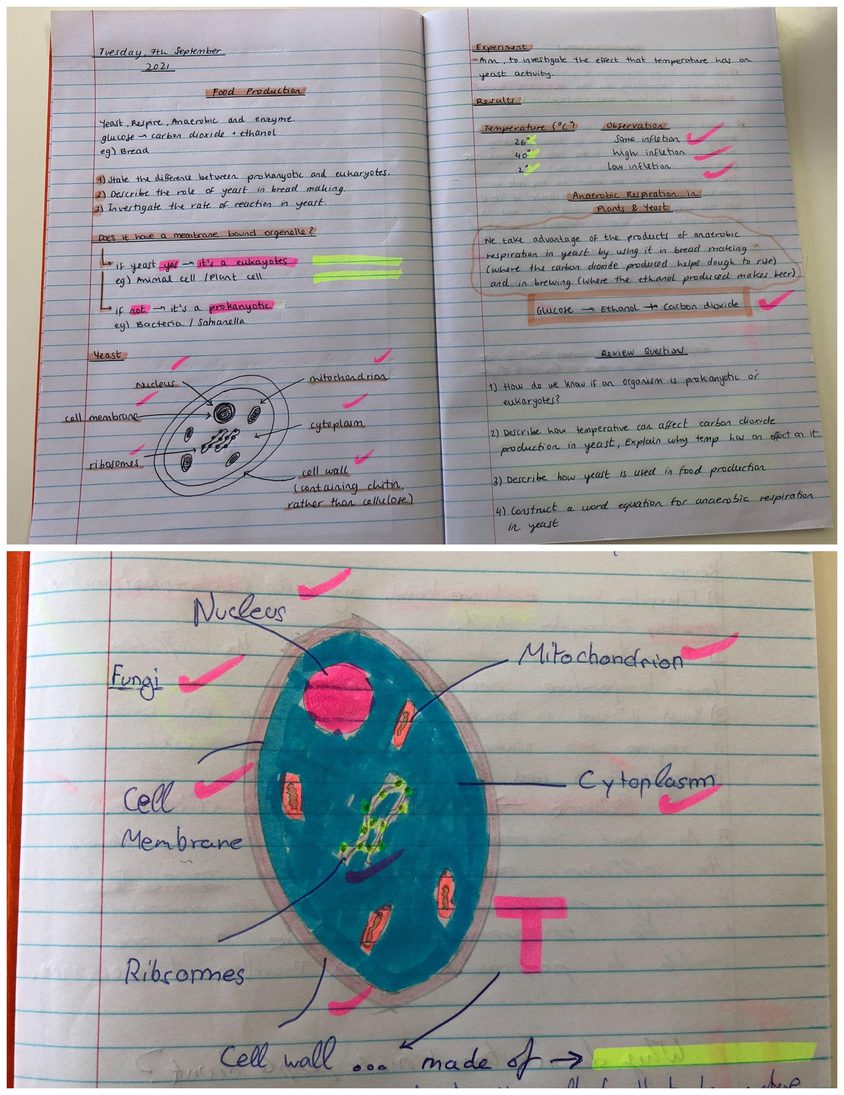 Tuesday, 7th September
2021
Food Production
Yeast, Respire, Anaerobic and enzyme
glucose → carbon dioxide + ethanol
eg) Bread
1) State the difference between prokaryotic and eukaryotes.
2) Describe the role of yeast in bread making.
3) Investigate the rate of reaction in yeast.
Does it have a membrane bound organelle?
if yeast yes → it's a eukaryotes
eg) Animal cell / Plant cell
if not → it's a prokaryotic
eg) Bacteria / Salmanella
Yeast
nucleus
mitochondrion
cell membrane
cytoplasm
ribosomes
cell wall
(containing chitin,
rather than cellulose)
Experiment
-Aim, to investigate the effect that temperature has on
yeast activity.
Results
Temperature (°C)
Observation
26°
Some infletion
40°
high infletion
2°
Low infletion
Anaerobic Respiration in
Plants & Yeast
We take advantage of the products of anaerobic
respiration in yeast by using it in bread making
(where the carbon dioxide produced helps dough to rise)
and in brewing (where the ethanol produced makes beer)
Glucose → Ethanol + Carbon dioxide
Review Questions
1) How do we know if an organism is prokaryotic or
eukaryotes?
2) Describe how temperative can affect carbon dioxide
production in yeast, Explain why temp has an effect on it.
3) Describe how yeast is used in food production
4) Construct a word equation for anaerobic respiration
in yeast
Nucleus
Mitochondrion
Fungi
Cell
Membrane
Cytoplasm
T
Ribsormes
Cell wall ... made of →